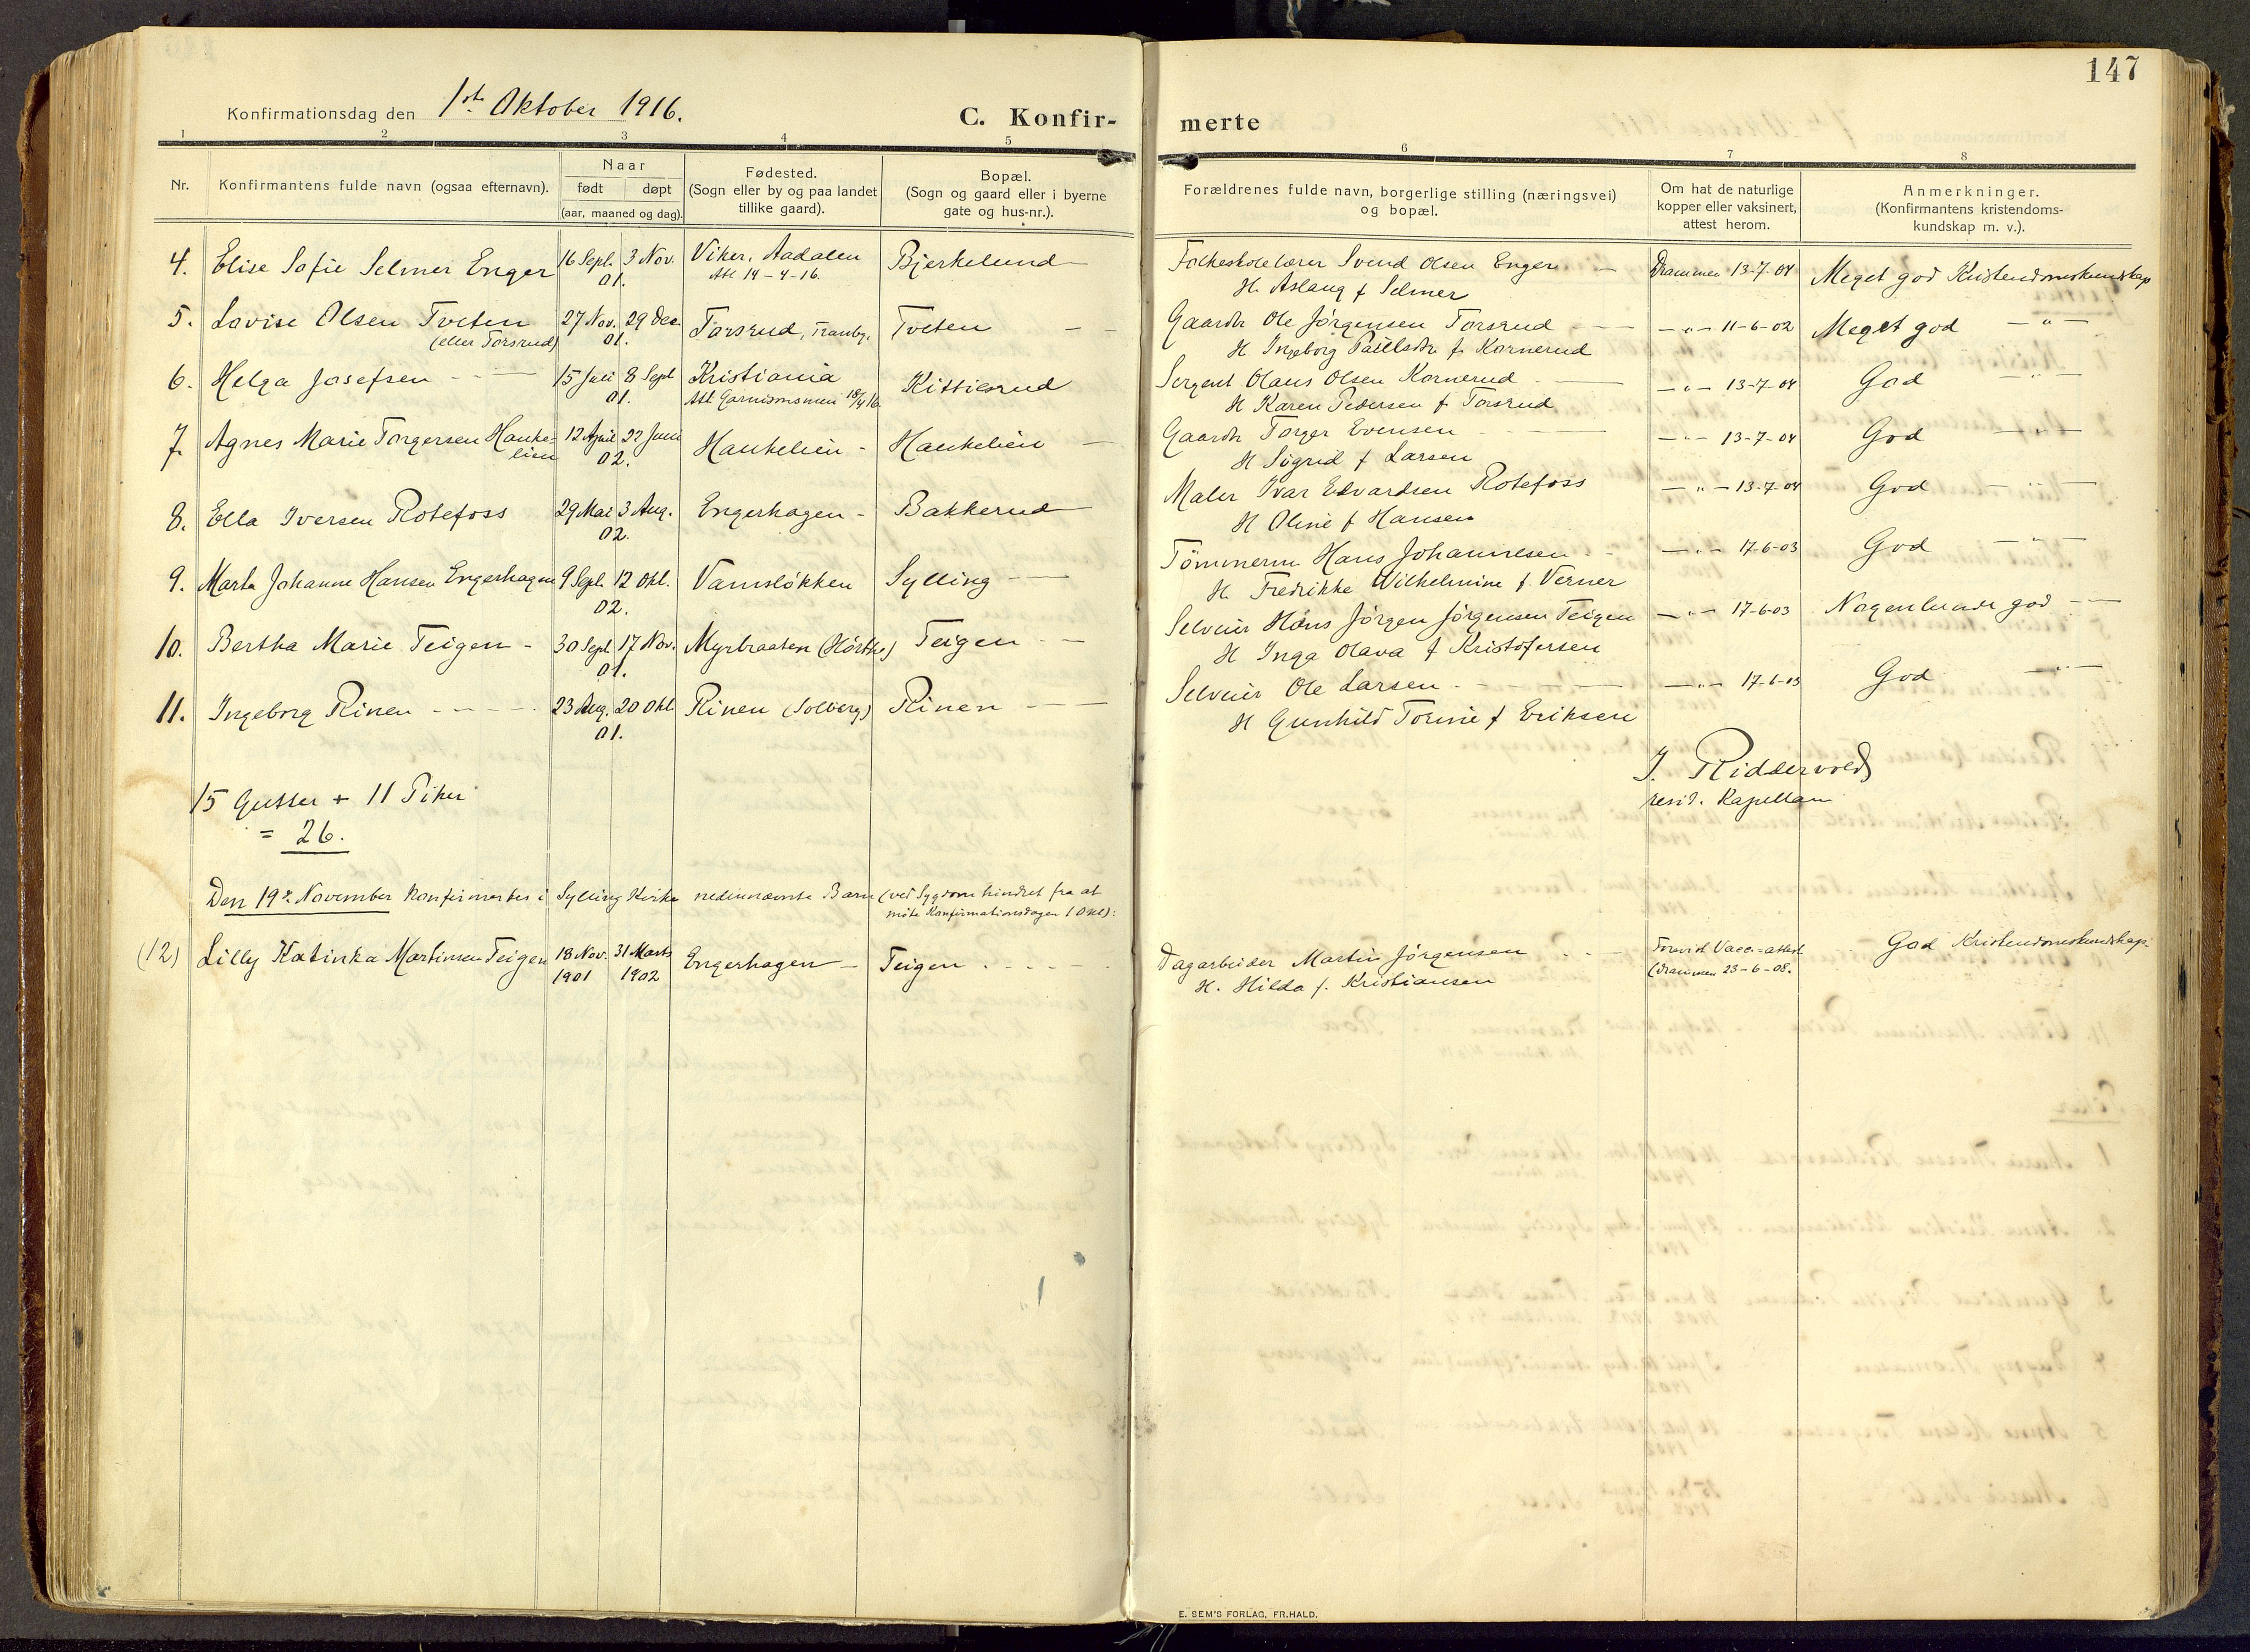 147
Konfirmationsdag den 1ste Oktober 1916.
C. Konfirmerte
1 2 3 4 5 6 7 8
Nr.
Konfirmantens fulde navn (ogsaa efternavn).
Naar
født døpt
(aar, maaned og dag).
Fødested.
(Sogn eller by og paa landet
tillike gaard).
Bopæl.
(Sogn og gaard eller i byerne
gate og hus-nr.).
Forældrenes fulde navn, borgerlige stilling (næringsvei)
og bopæl.
Om hat de naturlige
kopper eller vaksinert,
attest herom.
Anmerkninger.
(Konfirmantens kristendoms-
kundskap m. v.).
4. Elise Sofie Selmer Enger 16 Sept. 3 Nov. Viker, Aadalen Bjerkelund Folkeskolelærer Svend Olsen Enger Drammen 13-7-04 Meget god Kristendomskundskap
01. Att 14-4-16. H. Aslaug f Selmer
5. Lovise Olsen Tveten 27 Nov. 29 Dec. Torsrud, Tranby. Tveten Gaardbr Ole Jørgensen Torsrud - " - 11-6-02 Meget god - " -
(eller Torsrud) 01. H Ingeborg f. Kornerud
6. Helga Josefsen 15 Juli 8 Sept Kristiania Kittilsrud Sergent Olaus Olsen Kornerud - " - 13-7-04 God - " -
01. Att Garnisonsmen 18/4 16. H Karen Pedersen f Torsrud
7. Agnes Marie Torgersen Hauke- 12 April 22 Juni Haukelien - Haukelien Gaardbr Torger Evensen - " - 13-7-04 God - " -
lien 02. H Sigrid f Larsen
8. Ella Iversen Rotefoss 29 Mai 3 Aug. Engerhagen - Bakkerud Maler Ivar Edvardsen Rotefoss - " - 13-7-04 God - " -
02. H Oline f Hansen
9. Marta Johanne Hansen Engerhagen 9 Sept. 12 Okt. Vamsløkken Sylling Tømmerm Hans Johannesen - " - 17-6-03 God - " -
02. H. Fredrikke Wilhelmine f. Verner
10. Bertha Marie Teigen - 30 Sept 17 Nov. Myrbraaten Teigen Selveier Hans Jørgen Jørgensen Teigen - " - 17-6-03 Nogenlunde god
01. H Inga Olava f Kristofersen
11. Ingeborg Rinen 23 Aug. 20 Okt. Rinen (Solberg) Rinen Selveier Ole Larsen - " - 17-6-03 God - " -
01. H Gunhild Torine f Eriksen
J. Riddervold
resid. Kapellan
15 Gutter + 11 Piker
= 26.
Den 19de November konfirmertes i Sylling Kirke nedennævnte Barn (ved Sygdom hindret fra at
møte Konfirmationsdagen 1 Okt):
(12) Lilly Katinka Martinsen Teigen 18 Nov. 31 Marts Engerhagen Teigen Dagarbeider Martin Jørgensen Forevist Vacc.-attest God Kristendomskundskap.
1901 1902 H. Hilda f. Kristiansen (Drammen 23-6-08.
E. SEM'S FORLAG, FR.HALD.